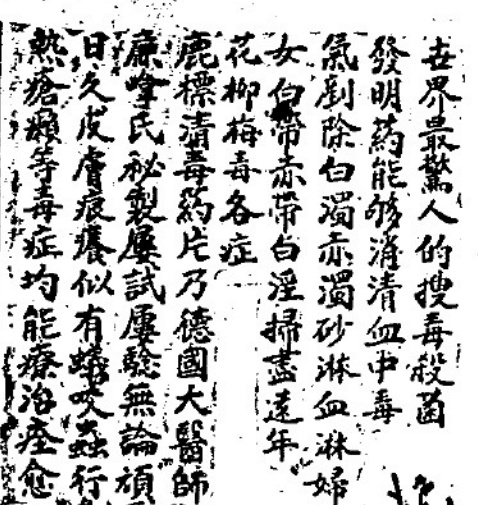 世界最驚人的搜毒殺菌
發明药能够消清血中毒
氣剷除白濁赤濁砂淋血淋婦
女白帶赤帶白淫掃盡遠年
花柳梅毒各症
鹿標清毒药片乃德國大醫師
廉峯氏秘製屢試屢驗無論頑
日久皮膚痕癢似有蟻咬蟲行
熱瘡癩等毒症均能療治痊愈